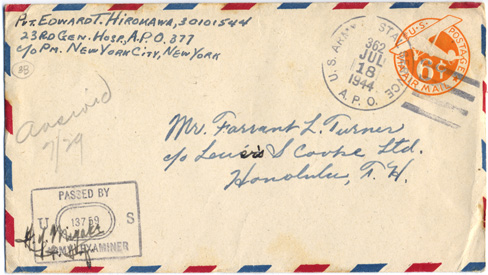 Pvt. Edward T. Hirokawa, 30101544
23rd Gen. Hosp. A.P.O. 377
c/o Pm. New York City, New York
38
Answered
7/29
U.S. ARMY POSTAL SERVICE
362
JUL
18
1944
A. P. O.
U.S. POSTAGE
6c
VIA AIR MAIL
Mr. Farrant L. Turner
c/o Lewers & Cooke Ltd.
Honolulu, T. H.
PASSED BY
U S
13769
ARMY EXAMINER